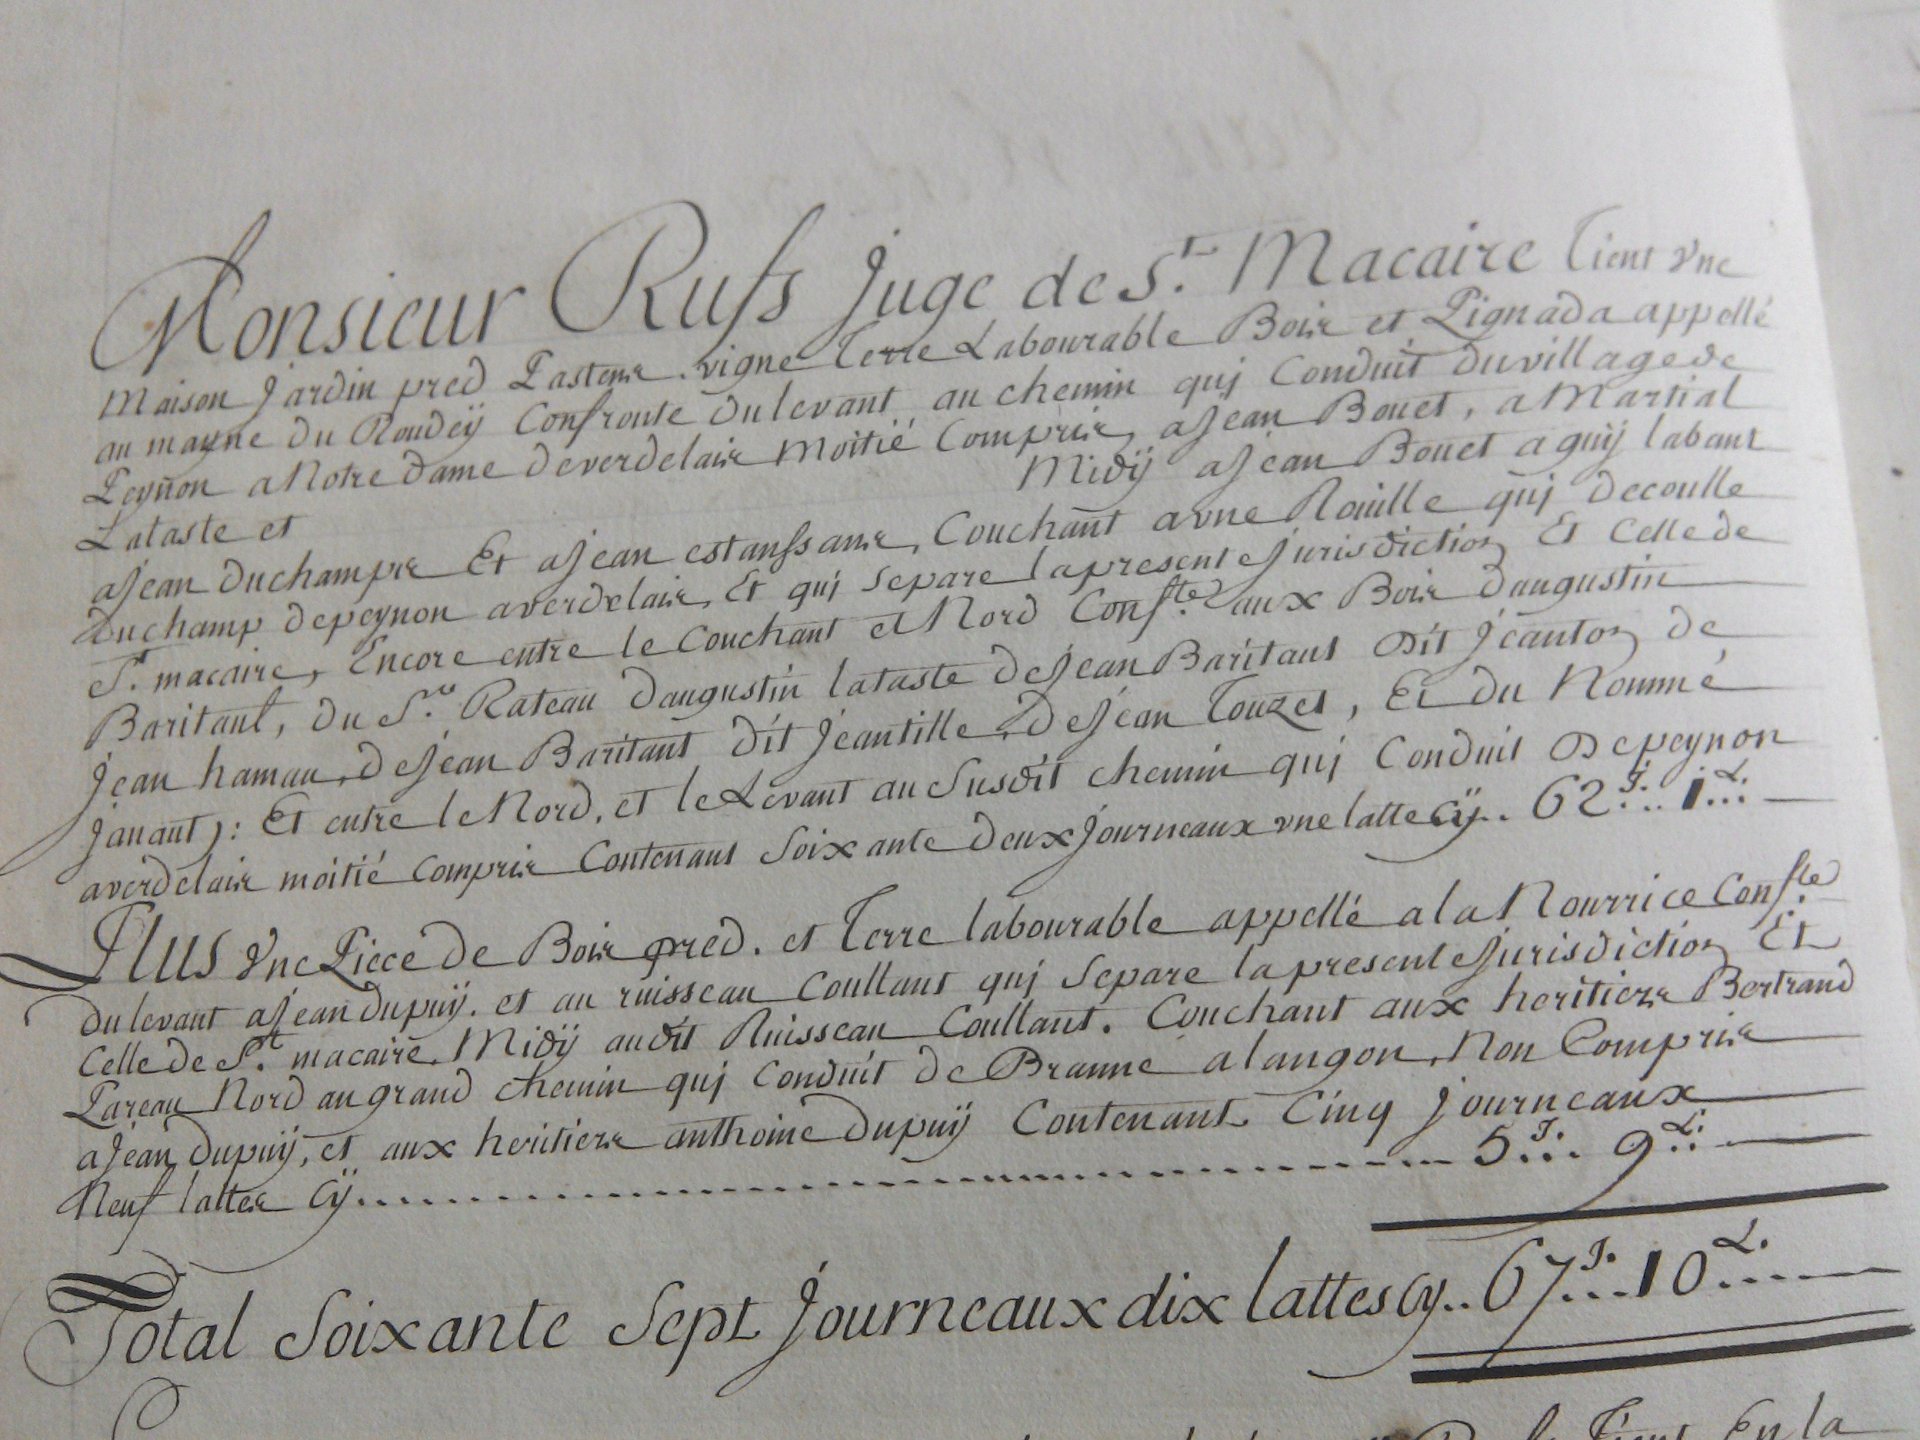 Monsieur Rufs Juge de St. Macaire Tient Vne
Maison Jardin pred Pastens vigne Terre Labourable Bois et Pignada appellé
au mayne du Roudeÿ Confronte du levant au chemin quj Conduit du village de
Peynon a Notre dame de verdelais Moitié Compris, a Jean Bouet, a Martial
Lataste et Midÿ a Jean Bouet a guÿ labant
a Jean Duchamps Et a Jean estanssans, Couchant a vne Rouille quj decoulle
du champ de peynon a verdelais, Et quj separe la presente Jurisdiction Et Celle de
St. macaire, Encore entre le Couchant et Nord Confte. aux Bois daugustin
Baritaut, du Sr. Rateau daugustin lataste de Jean Baritaut Dit Jeanton de
Jean hamau, de Jean Baritaut dit Jeantille, de Jean Touzet, Et du Nommé
Janant): Et entre le Nord, et le Levant au Susdit chemin quj Conduit De peynon
a verdelais moitié compris Contenant Soixante deux Journeaux vne latte Cÿ.. 62 J... 1 L...
Plus Vne Piece de Bois pred. et Terre labourable appellé a la Nourrice Confte.
du levant a Jean dupuÿ. et au ruisseau Coullant quj Separe la presente Jurisdiction Et
Celle de St. macaire, Midÿ audit Ruisseau Coullant. Couchant aux heritiers Bertrand
Pareau Nord au grand chemin quj Conduit de Branne a langon, Non Compris
a Jean dupuÿ, et aux heritiers anthoine Dupuÿ Contenant Cinq Journeaux
Neuf lattes Cÿ.................... 5 J... 9 L..
Total Soixante Sept Journeaux dix lattes Cy.. 67 J... 10 L....
Tient En la